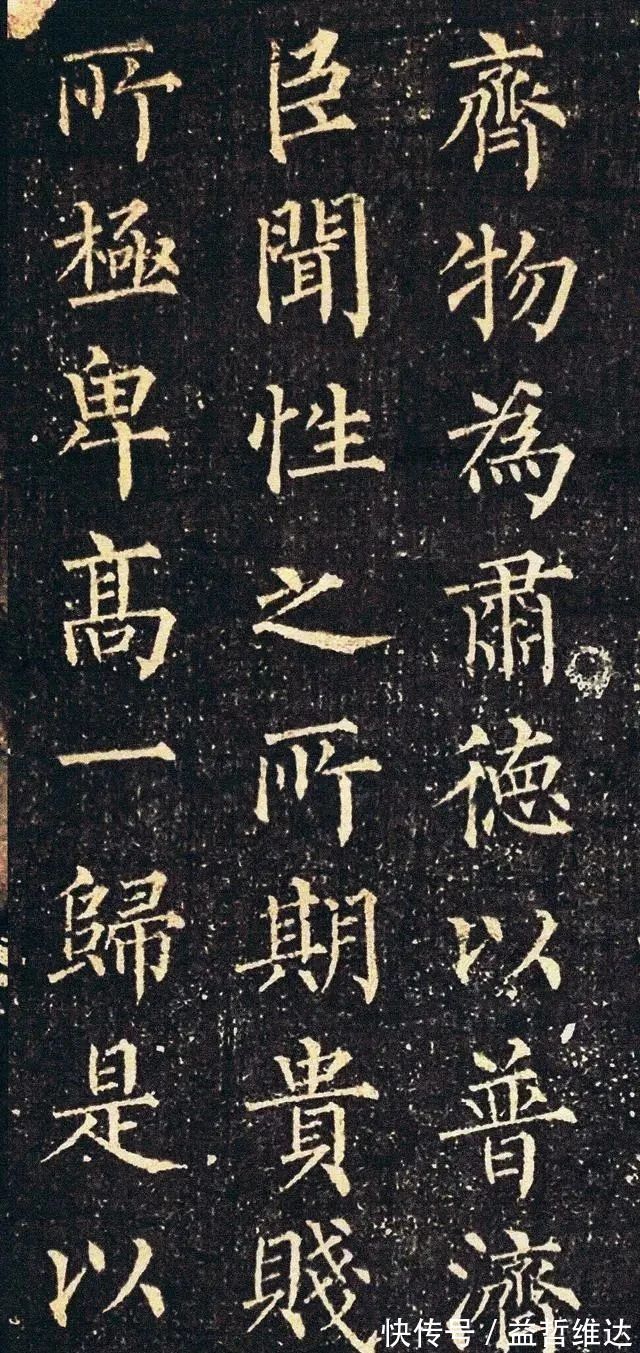 齊物為肅德以普濟
臣聞性之所期貴賤
所極卑髙一歸是以
快传号／益哲维达